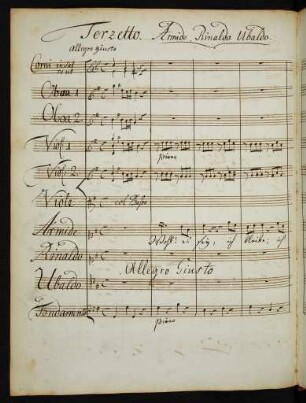 Terzetto. Armida Rinaldo Ubaldo.
Allegro giusto
Corni in
Oboe 1
Oboe 2
Viol: 1
piano
Viol: 2
Viola
col Basso
Armida
ich
Rinaldo
Allegro Giusto
Ubaldo
Fondamento
piano